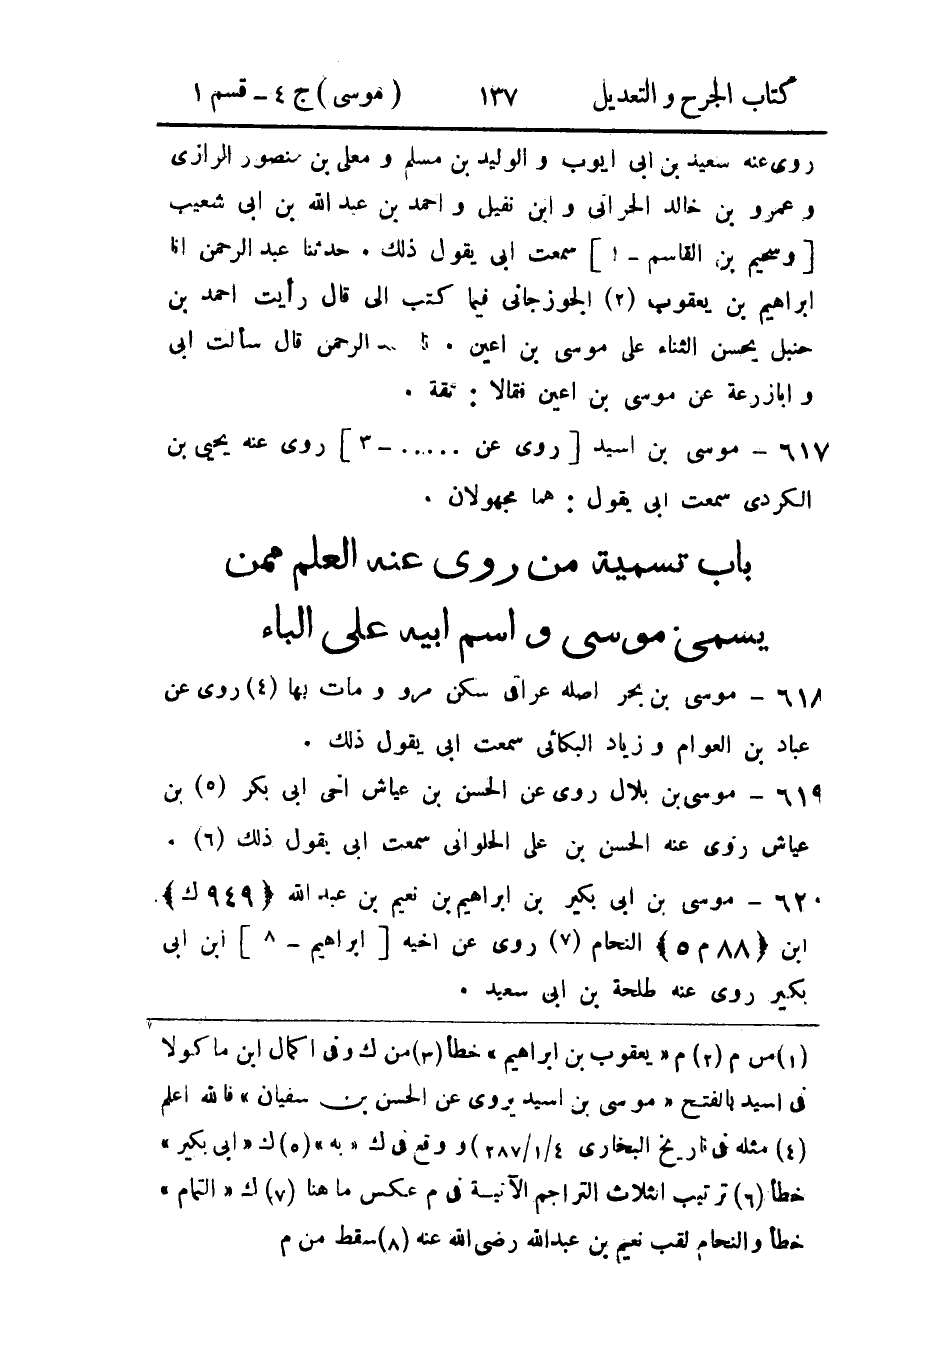 كتاب الجرح و التعديل ١٣٧ (موسى) ج ٤ – قسم ١
روى عنه سعيد بن ابى ايوب و الوليد بن مسلم و معلى بن منصور الرازى
و عمرو بن خالد الحرانى و ابن نفيل و احمد بن عبد الله بن ابى شعيب
[وسحيم بن القاسم – ١] سمعت ابى يقول ذلك . حدثنا عبد الرحمن انا
ابراهيم بن يعقوب (٢) الجوزجانى فيما كتب الى قال رأيت احمد بن
حنبل يحسن الثناء على موسى بن اعين . نا عبد الرحمن قال سألت ابى
و ابازرعة عن موسى بن اعين فقالا : ثقة .
٦١٧ – موسى بن اسيد [روى عن ..... – ٣] روى عنه يحيى بن
الكردى سمعت ابى يقول : هما مجهولان .
باب تسمية من روى عنه العلم ممن
يسمى موسى و اسم ابيه على الباء
٦١٨ – موسى بن بحر اصله عراقى سكن مرو و مات بها (٤) روى عن
عباد بن العوام و زياد البكائى سمعت ابى يقول ذلك .
٦١٩ – موسى بن بلال روى عن الحسن بن عياش اخى ابى بكر (٥) بن
عياش روى عنه الحسن بن على الحلوانى سمعت ابى يقول ذلك (٦) .
٦٢٠ – موسى بن ابى بكير بن ابراهيم بن نعيم بن عبد الله ﴿٩٤٩ ك﴾
ابن ﴿٨٨ م ٥﴾ النحام (٧) روى عن اخيه [ابراهيم – ٨] ابن ابى
بكير روى عنه طلحة بن ابى سعيد .
(١) من م (٢) م « يعقوب بن ابراهيم » خطأ (٣) من ك وفى اكمال ابن ماكولا
فى اسيد بالفتح « موسى بن اسيد يروى عن الحسن بن سفيان » فالله اعلم
(٤) مثله فى تاريخ البخارى ٢٨٧/١/٤) و وقع فى ك « به » (٥) ك « ابى بكير »
خطأ (٦) ترتيب الثلاث التراجم الآتية فى م عكس ما هنا (٧) ك « التمام »
خطأ والنحام لقب نعيم بن عبدالله رضى الله عنه (٨) سقط من م